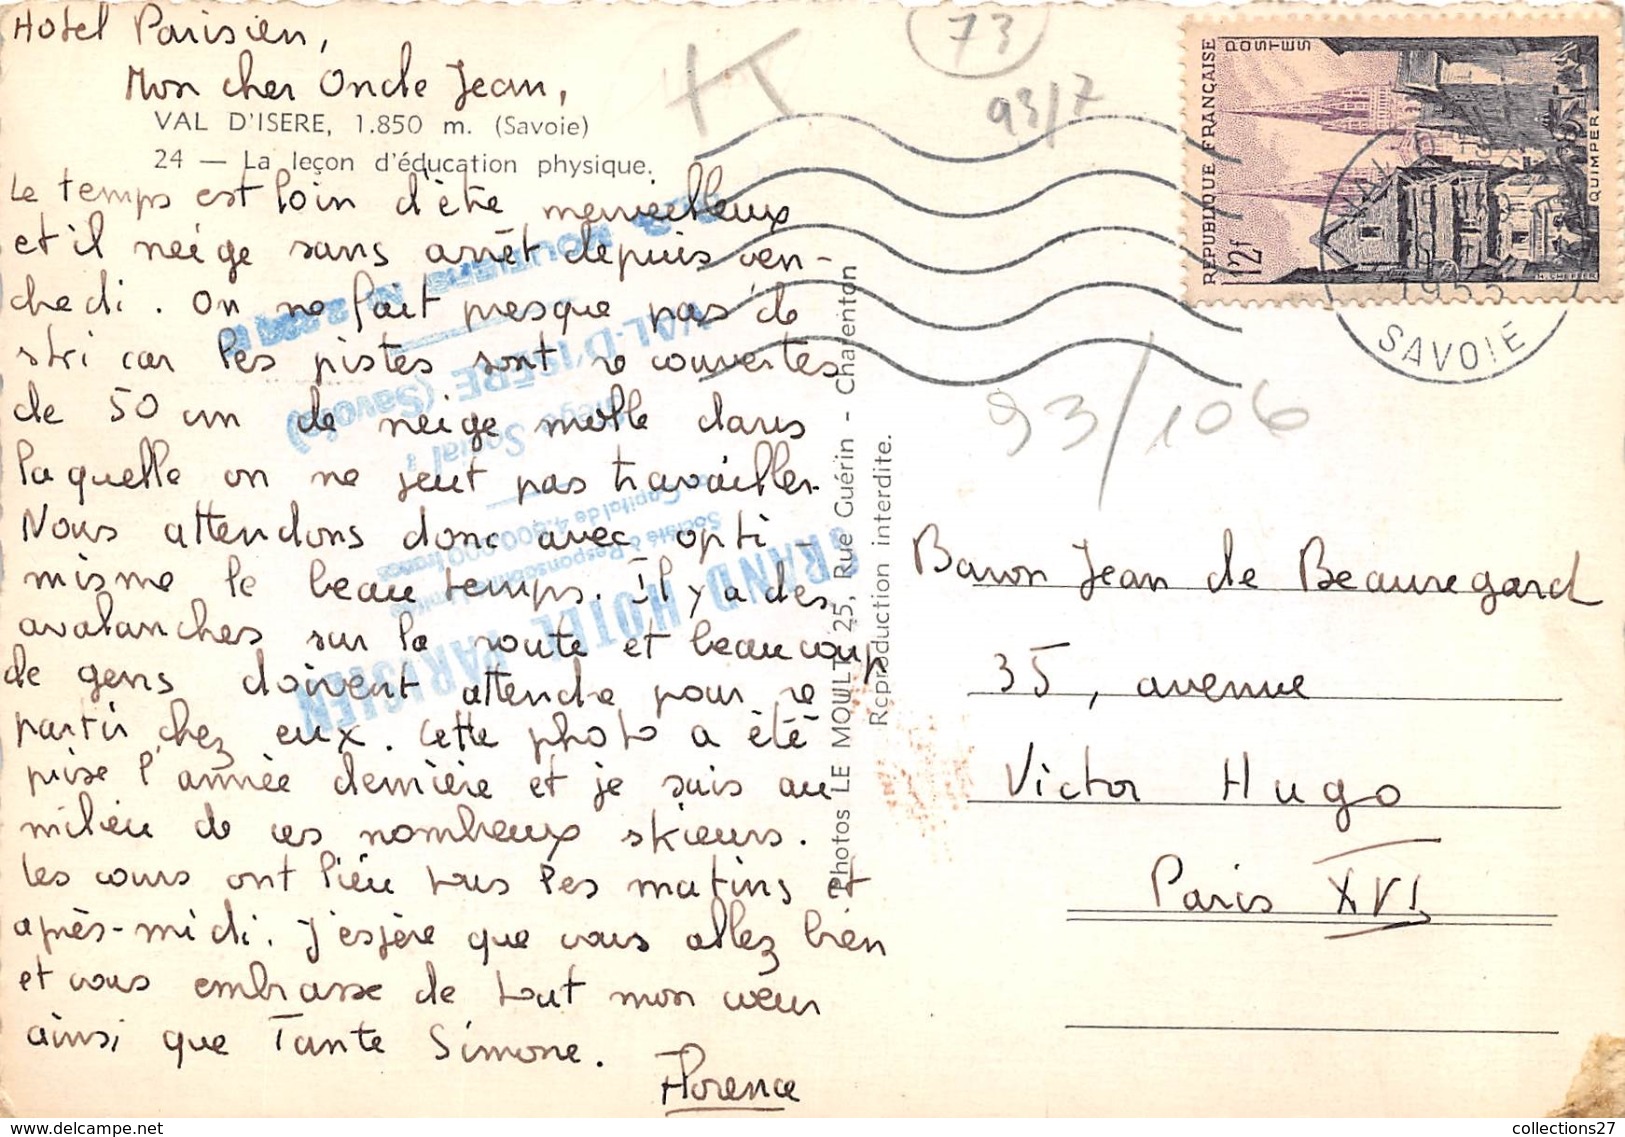 Hotel Parisien,
Mon cher Oncle Jean,
VAL D'ISERE, 1.850 m. (Savoie)
24 — La leçon d'éducation physique.
Le temps est loin d'être merveilleux
et il neige sans arrêt depuis ven-
chedi. On ne fait presque pas de
ski car les pistes sont recouvertes
de 50 cm de neige molle dans
laquelle on ne peut pas travailler.
Nous attendons donc avec opti-
misme le beau temps. Il y a des
avalanches sur la route et beaucoup
de gens doivent attendre pour re
partir chez eux. Cette photo a été
prise l'année dernière et je suis au
milieu de ces nombreux skieurs.
Les cours ont lieu tous les matins et
après-midi. J'espère que vous allez bien
et vous embrasse de tout mon cœur
ainsi que Tante Simone.
Florence
GRAND HOTEL PARISIEN
Société à Responsabilité Limitée
au Capital de 4.500.000 francs
Siège Social :
VAL-D'ISÈRE (Savoie)
Photos LE MOULT 25, Rue Guérin - Charenton
Reproduction interdite.
73
93/7
93/106
REPUBLIQUE FRANÇAISE
POSTES
12f
QUIMPER
1955
SAVOIE
Baron Jean de Beauregard
35, avenue
Victor Hugo
Paris XVI
collections27